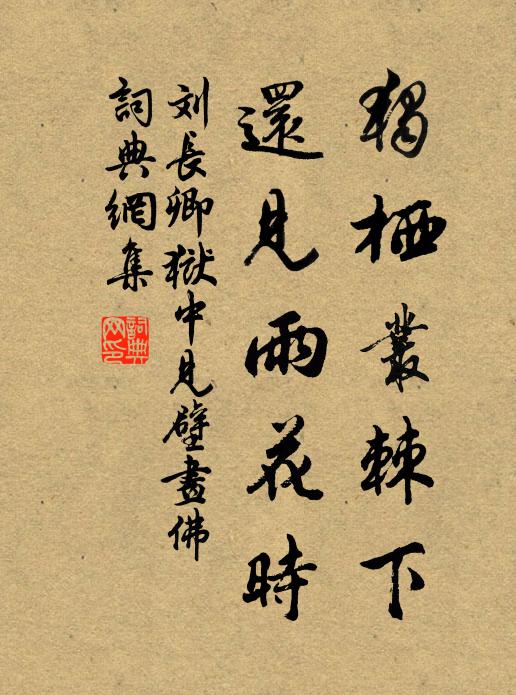 獨栖叢棘下
還見雨花時
刘長卿獄中見壁畫佛
詞典網集
詞典网印